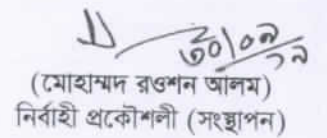 ৩০/০৯/১৯
(মোহাম্মদ রওশন আলম)
নির্বাহী প্রকৌশলী (সংস্থাপন)